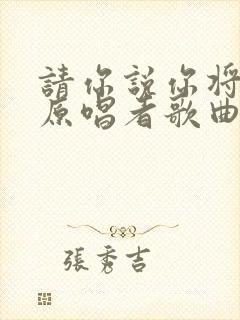 請你說你將
原唱者歌曲
張秀吉